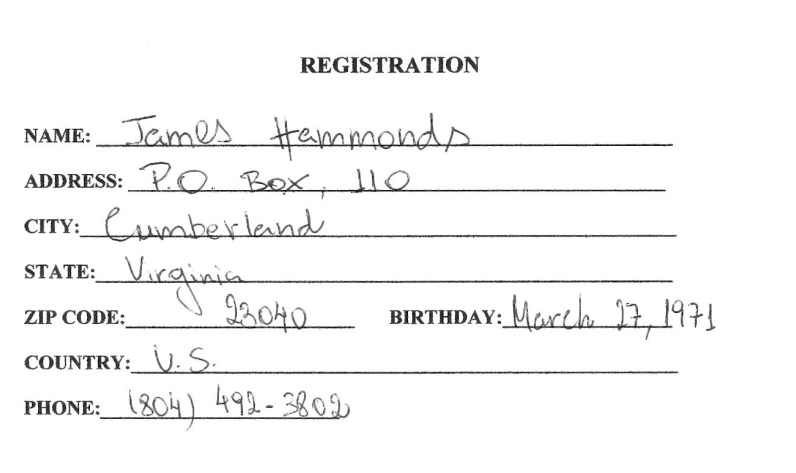 REGISTRATION
NAME: James Hammonds
ADDRESS: P.O. Box, 110
CITY: Cumberland
STATE: Virginia
ZIP CODE: 23040 BIRTHDAY: March 27, 1971
COUNTRY: U.S.
PHONE: (804) 492-3802